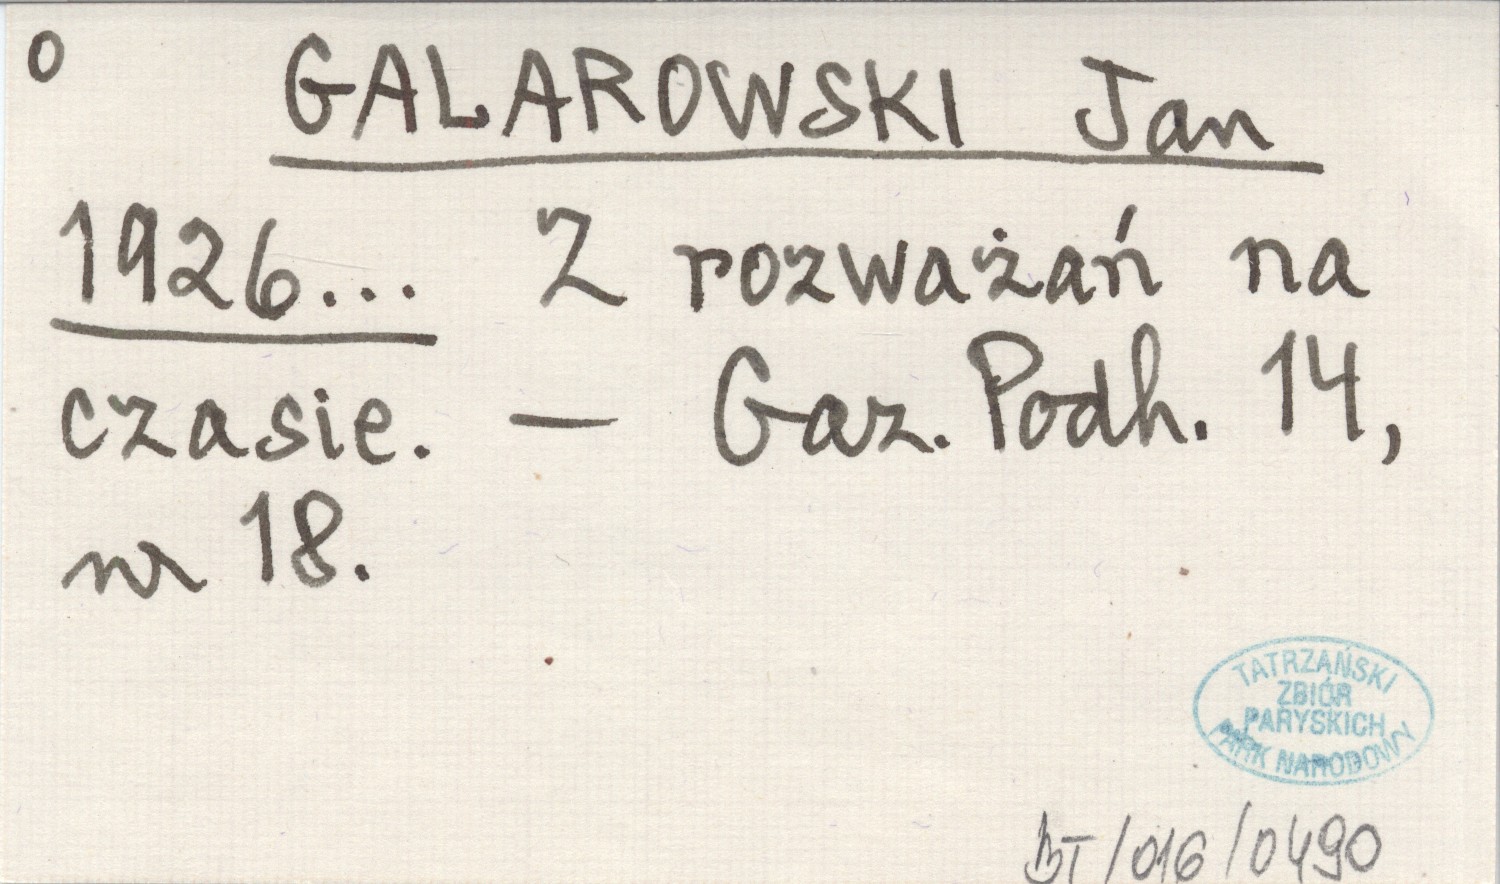 o
GALAROWSKI Jan
1926... Z rozważań na
czasie. — Gaz. Podh. 14,
nr 18.
TATRZAŃSKI
ZBIÓR
PARYSKICH
PARK NARODOWY
BT/016/0490